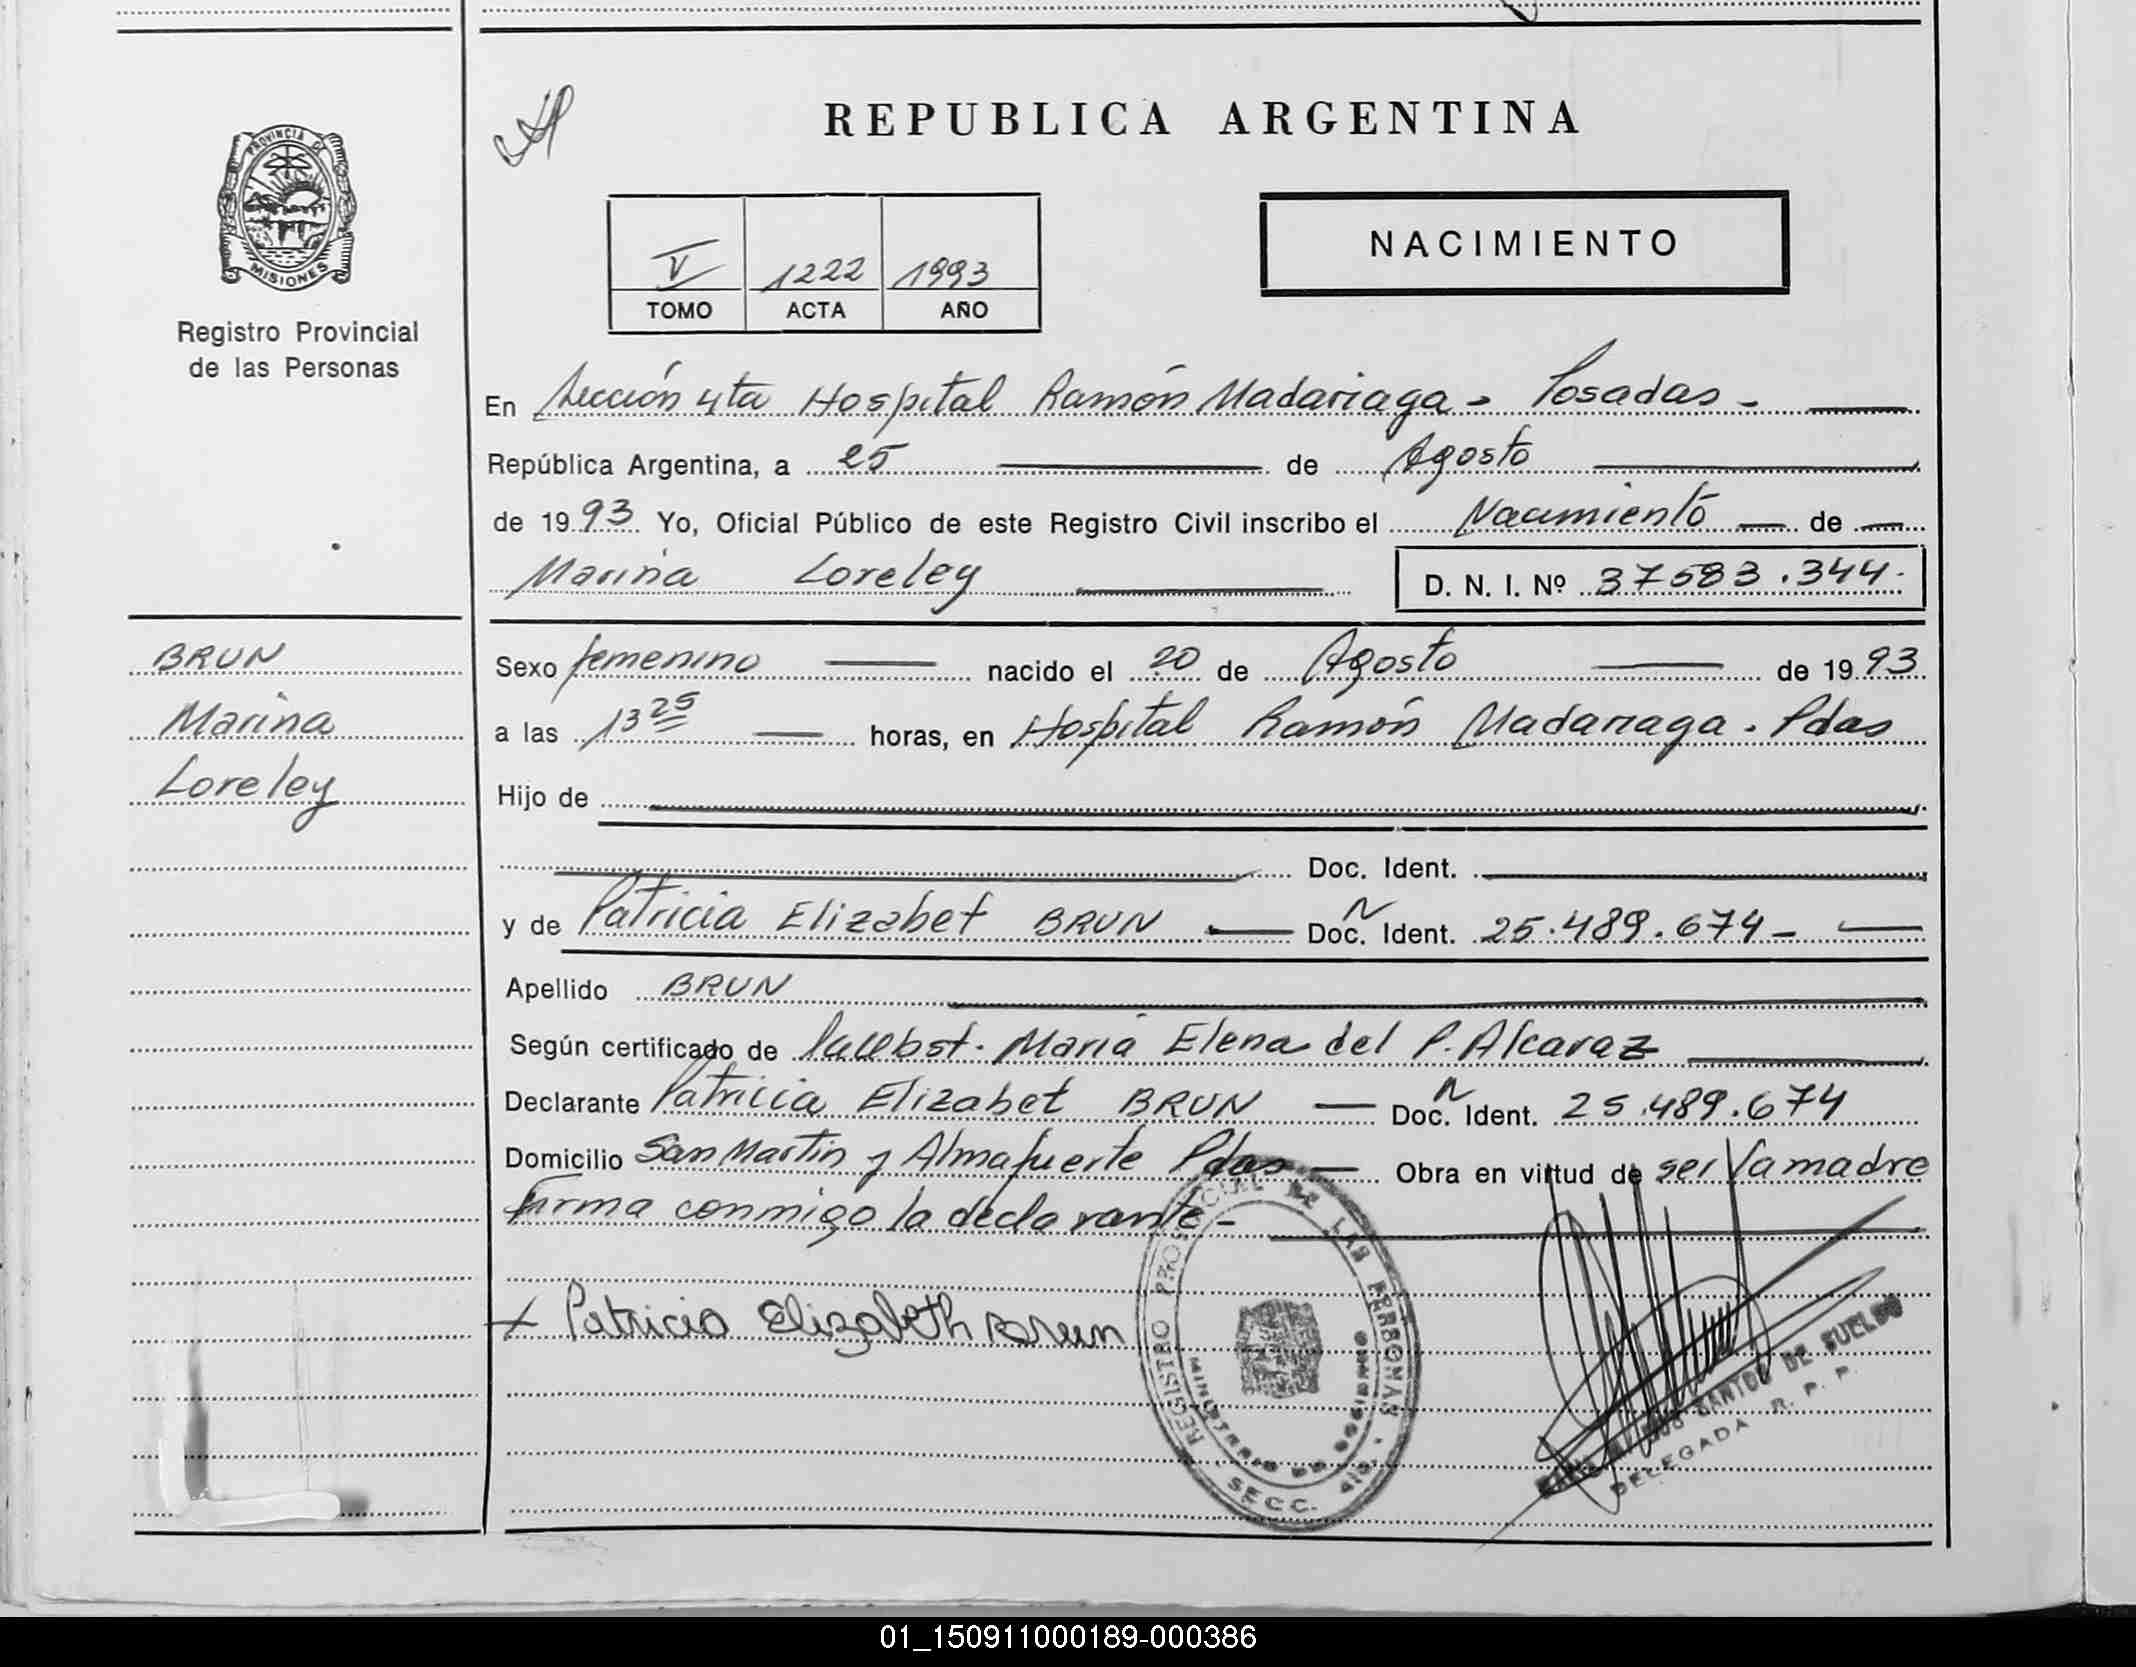 PROVINCIA DE
MISIONES
Registro Provincial
de las Personas
REPUBLICA ARGENTINA
V 1222 1993
TOMO ACTA AÑO
NACIMIENTO
En Sección 4ta Hospital Ramón Madariaga - Posadas -
República Argentina, a 25 de Agosto
de 1993 Yo, Oficial Público de este Registro Civil inscribo el Nacimiento de
Marina Loreley D. N. I. Nº 37583.344.
BRUN
Marina
Loreley
Sexo femenino nacido el 20 de Agosto de 1993
a las 13 25 horas, en Hospital Ramón Madariaga. Pdas
Hijo de
Doc. Ident.
y de Patricia Elizabet BRUN Doc. N Ident. 25.489.674 -
Apellido BRUN
Según certificado de María Elena del P. Alcaraz
Declarante Patricia Elizabet BRUN Doc. N Ident. 25.489.674
Domicilio San Martin y Almafuerte Pdas Obra en virtud de ser la madre
firma conmigo la declarante -
x Patricia Elizabeth Brun
REGISTRO PROVINCIAL DE LAS PERSONAS
MINISTERIO DE GOBIERNO
SECC. 4ta.
SANTOS DE SUELDO
DELEGADA R. P. P.
01_150911000189-000386